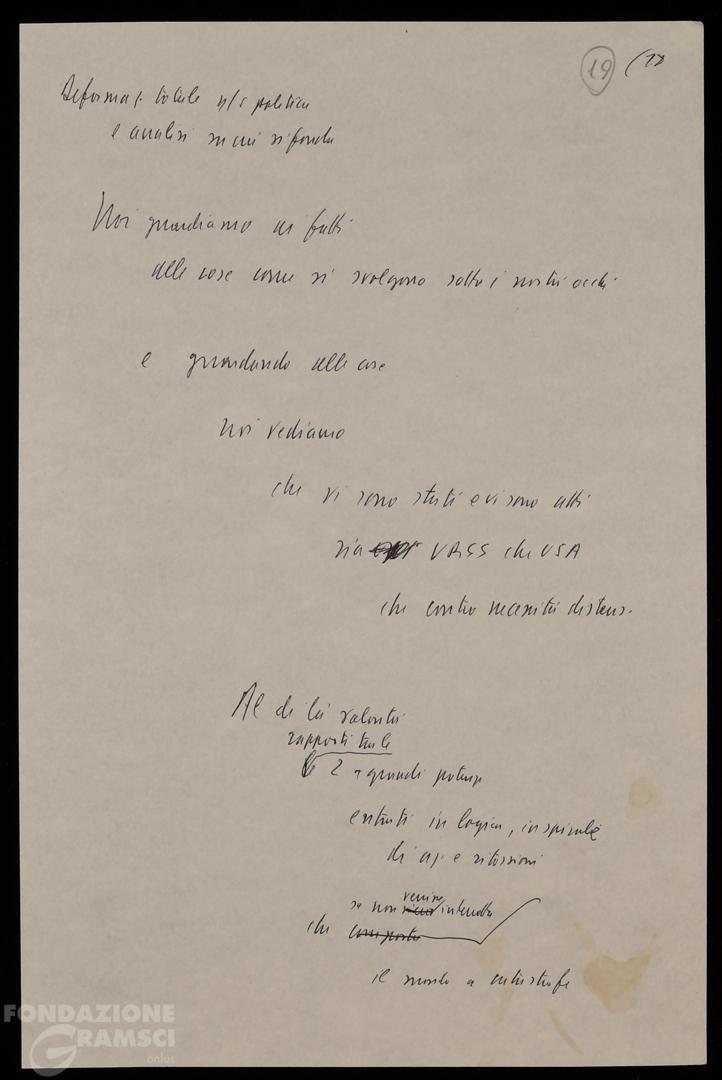 19 (18
Deformaz. totale n/s politica
e analisi su cui si fonda
Noi guardiamo ai fatti
alle cose come si svolgono sotto i nostri occhi
e guardando alle cose
noi vediamo
che vi sono stati e vi sono atti
sia URSS che USA
che contro necessità distens.
Al di là volontà
rapporti tra le
2 + grandi potenze
entrati in logica, in spirale
di az. e ritorsioni
se non venisse interrotta
che comporta
il mondo a catastrofe
FONDAZIONE
GRAMSCI
onlus